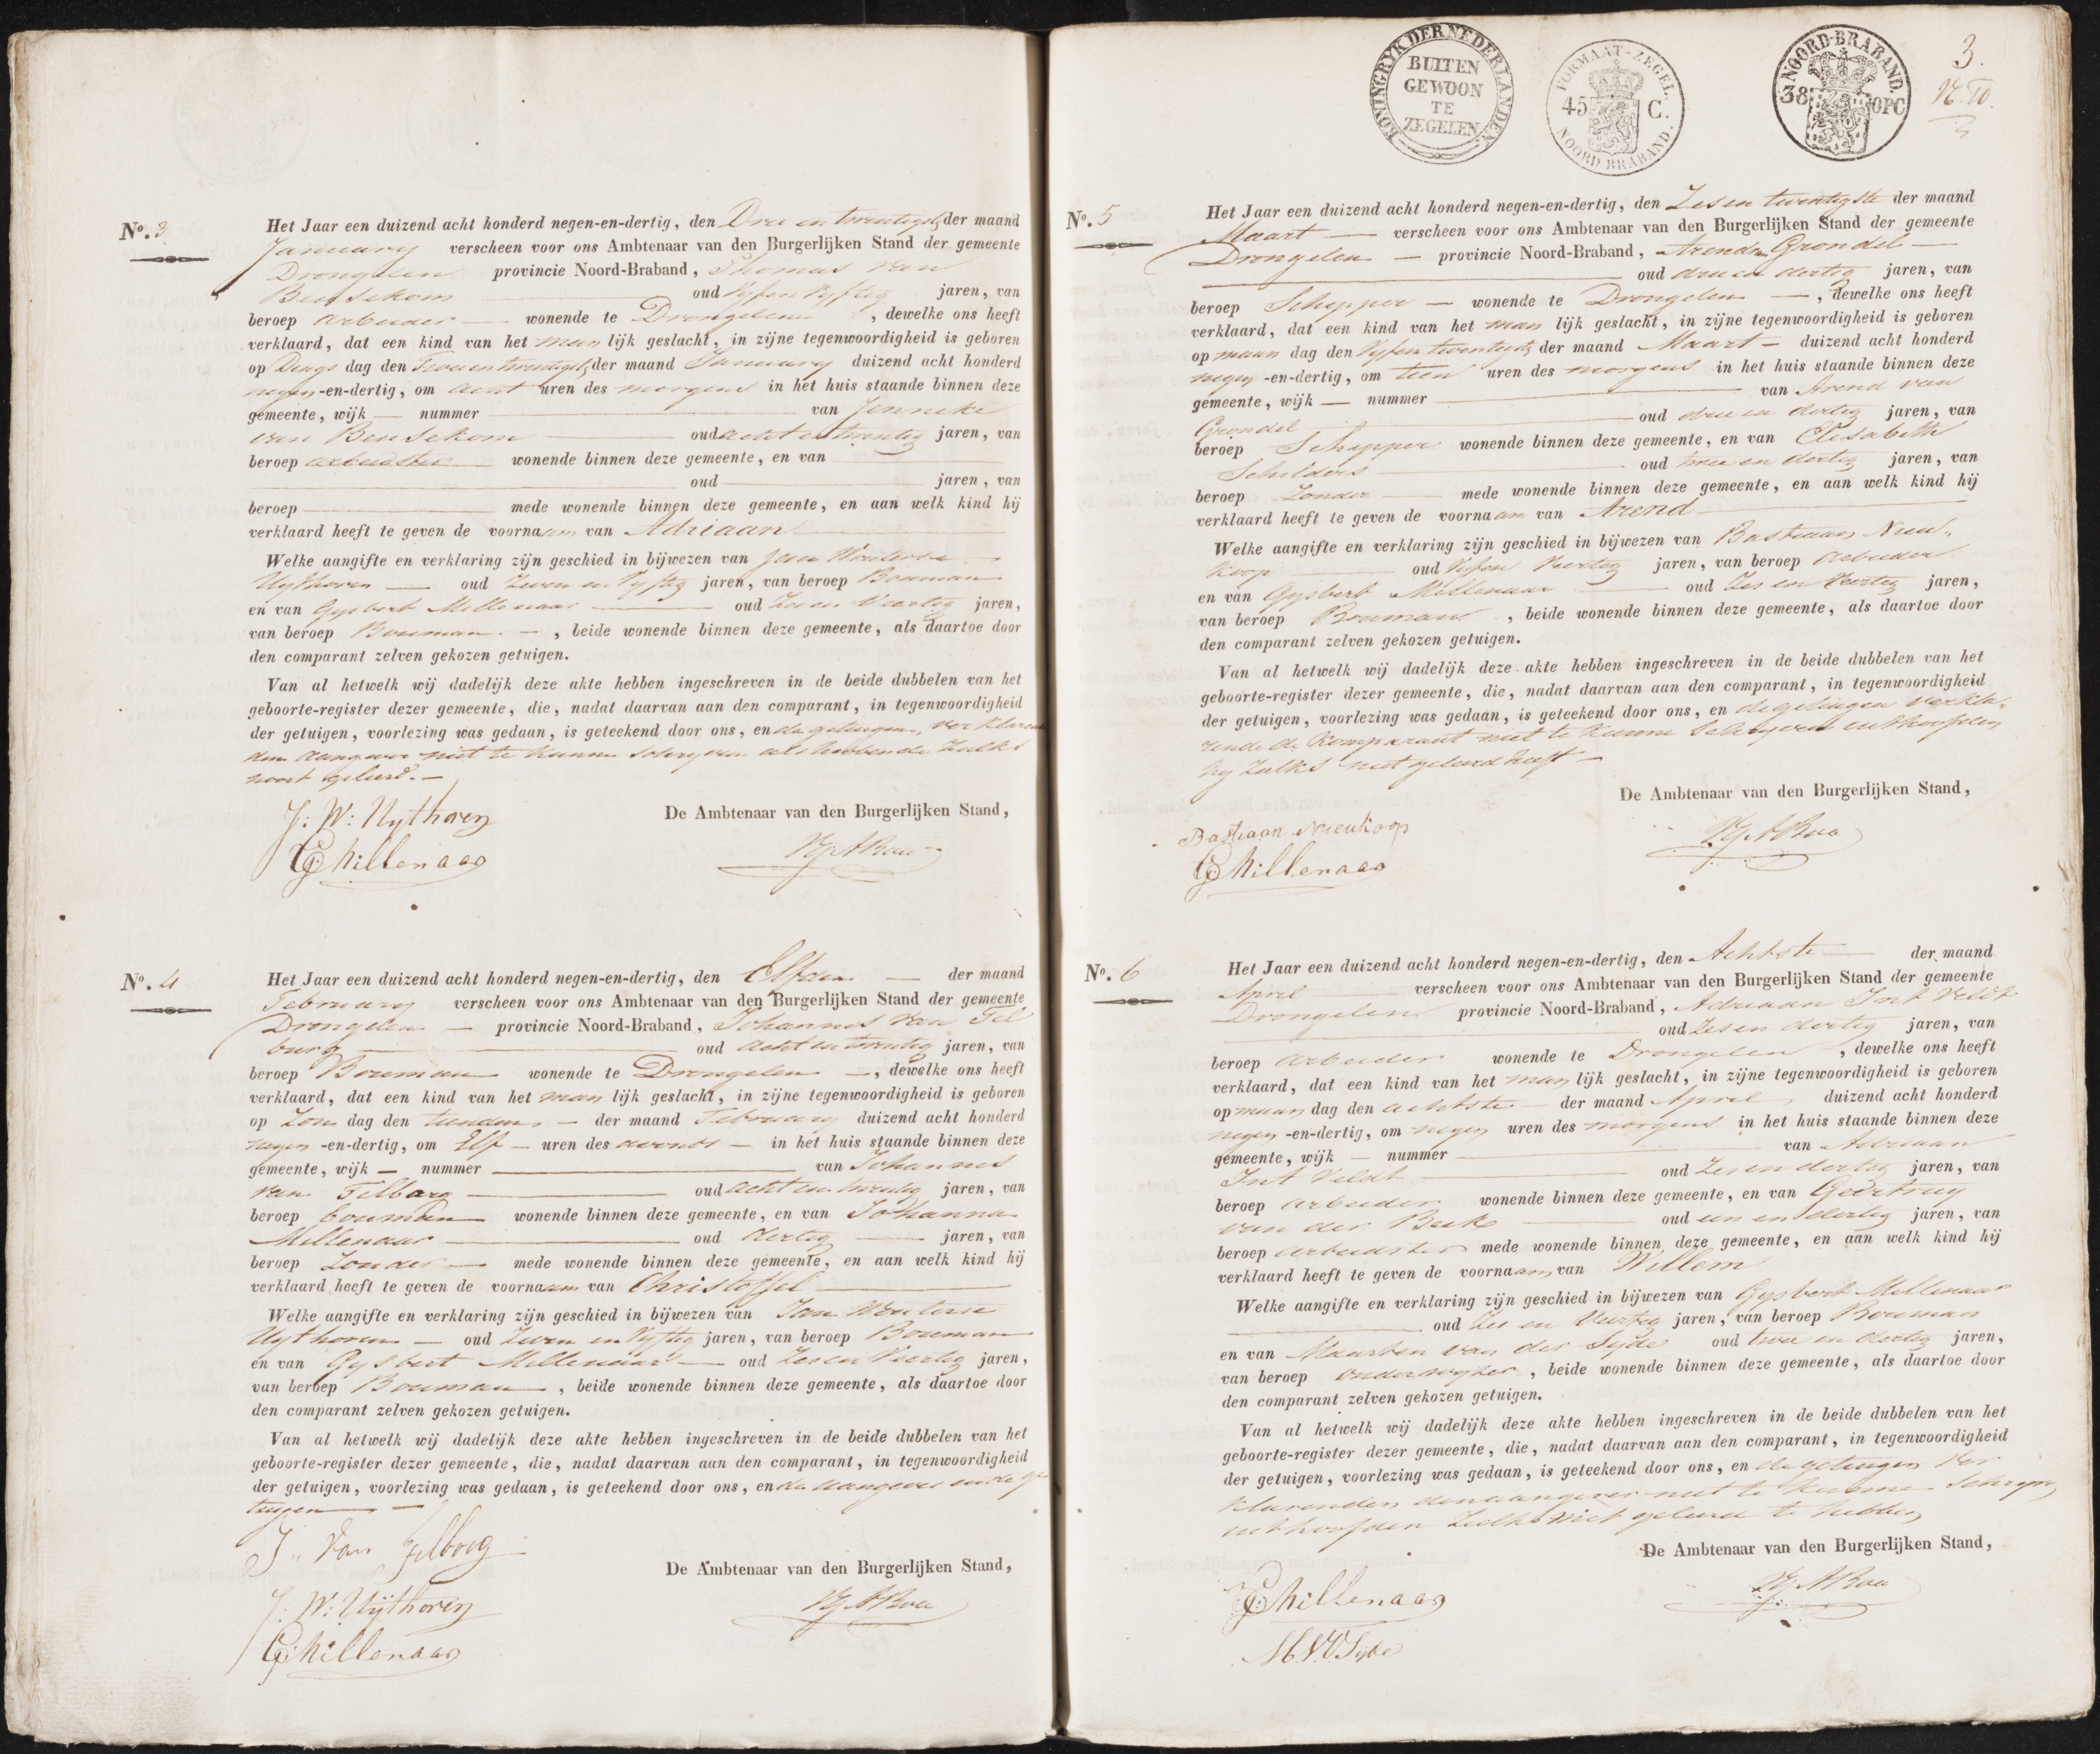 N.º 3
Het Jaar een duizend acht honderd negen-en-dertig, den Drie en twintigste der maand
January verscheen voor ons Ambtenaar van den Burgerlijken Stand der gemeente
Drongelen provincie Noord-Braband, Thomas van
Beusekom oud Vyf en Vyftig jaren, van
beroep arbeider wonende te Drongelen, dewelke ons heeft
verklaard, dat een kind van het man lijk geslacht, in zijne tegenwoordigheid is geboren
op Dings dag den Twee en twintigste der maand January duizend acht honderd
negen-en-dertig, om acht uren des morgens in het huis staande binnen deze
gemeente, wijk — nummer — van Jenneke
van Beusekom oud acht en twintig jaren, van
beroep arbeidster wonende binnen deze gemeente, en van
oud — jaren, van
beroep — mede wonende binnen deze gemeente, en aan welk kind hij
verklaard heeft te geven de voornaam van Adriaan
Welke aangifte en verklaring zijn geschied in bijwezen van Jan Wouterse
Uythoven — oud Zeven en Vyftig jaren, van beroep Bouman
en van Gysbert Millenaar — oud Zes en Veertig jaren,
van beroep Bouman —, beide wonende binnen deze gemeente, als daartoe door
den comparant zelven gekozen getuigen.
Van al hetwelk wij dadelijk deze akte hebben ingeschreven in de beide dubbelen van het
geboorte-register dezer gemeente, die, nadat daarvan aan den comparant, in tegenwoordigheid
der getuigen, voorlezing was gedaan, is geteekend door ons, en de getuigen, verklarende
den aangever niet te kunnen schryven als hebbende zulks
nooit geleerd. —
De Ambtenaar van den Burgerlijken Stand,
J: W: Uythoven
G Millenaar
N.º 4
Het Jaar een duizend acht honderd negen-en-dertig, den Elfden — der maand
February verscheen voor ons Ambtenaar van den Burgerlijken Stand der gemeente
Drongelen — provincie Noord-Braband, Johannes van Til
burg — oud acht en twintig jaren, van
beroep Bouman wonende te Drongelen —, dewelke ons heeft
verklaard, dat een kind van het man lijk geslacht, in zijne tegenwoordigheid is geboren
op Zon dag den tienden — der maand February duizend acht honderd
negen-en-dertig, om Elf — uren des avonds — in het huis staande binnen deze
gemeente, wijk — nummer — van Johannes
van Tilburg — oud acht en twintig jaren, van
beroep bouman wonende binnen deze gemeente, en van Johanna
Millenaar — oud dertig — jaren, van
beroep Zonder — mede wonende binnen deze gemeente, en aan welk kind hij
verklaard heeft te geven de voornaam van Christoffel
Welke aangifte en verklaring zijn geschied in bijwezen van Jan Wouterse
Uythoven — oud Zeven en Vyftig jaren, van beroep Bouman
en van Gysbert Millenaar — oud Zes en Veertig jaren,
van beroep Bouman —, beide wonende binnen deze gemeente, als daartoe door
den comparant zelven gekozen getuigen.
Van al hetwelk wij dadelijk deze akte hebben ingeschreven in de beide dubbelen van het
geboorte-register dezer gemeente, die, nadat daarvan aan den comparant, in tegenwoordigheid
der getuigen, voorlezing was gedaan, is geteekend door ons, en den aangever en de ge
tuigen —
J. van Tilborg
De Ambtenaar van den Burgerlijken Stand,
J: W: Uythoven
G Millenaar
KONINGRYK DER NEDERLANDEN.
BUITEN
GEWOON
TE
ZEGELEN
FORMAAT-ZEGEL.
45 C.
NOORD BRABAND.
NOORD-BRABAND.
38 OPC
3.
N.º 5
Het Jaar een duizend acht honderd negen-en-dertig, den Zes en twintigste der maand
Maart — verscheen voor ons Ambtenaar van den Burgerlijken Stand der gemeente
Drongelen — provincie Noord-Braband, Arend van Grondel —
oud drie en dertig jaren, van
beroep Schepper — wonende te Drongelen —, dewelke ons heeft
verklaard, dat een kind van het man lijk geslacht, in zijne tegenwoordigheid is geboren
op maan dag den Vyf en twintigste der maand Maart — duizend acht honderd
negen-en-dertig, om tien uren des morgens in het huis staande binnen deze
gemeente, wijk — nummer — van Arend van
Grondel — oud drie en dertig jaren, van
beroep Schepper wonende binnen deze gemeente, en van Elisabeth
Schilders oud twee en dertig jaren, van
beroep Zonder — mede wonende binnen deze gemeente, en aan welk kind hij
verklaard heeft te geven de voornaam van Arend
Welke aangifte en verklaring zijn geschied in bijwezen van Bastiaan Nieu-
koop — oud Vyf en Veertig jaren, van beroep arbeider
en van Gysbert Millenaar — oud Zes en Veertig jaren,
van beroep Bouman, beide wonende binnen deze gemeente, als daartoe door
den comparant zelven gekozen getuigen.
Van al hetwelk wij dadelijk deze akte hebben ingeschreven in de beide dubbelen van het
geboorte-register dezer gemeente, die, nadat daarvan aan den comparant, in tegenwoordigheid
der getuigen, voorlezing was gedaan, is geteekend door ons, en de getuigen verkla-
rende de Komparant niet te kunnen Schryven uithoofden
hy zulks niet geleerd heeft —
De Ambtenaar van den Burgerlijken Stand,
Bastiaan Nieukoop
G Millenaar
N.º 6
Het Jaar een duizend acht honderd negen-en-dertig, den Achtste — der maand
April — verscheen voor ons Ambtenaar van den Burgerlijken Stand der gemeente
Drongelen provincie Noord-Braband, Adriaan Int Veldt
oud Zes en dertig jaren, van
beroep arbeider wonende te Drongelen, dewelke ons heeft
verklaard, dat een kind van het man lijk geslacht, in zijne tegenwoordigheid is geboren
op maan dag den achtste — der maand April duizend acht honderd
negen-en-dertig, om negen uren des morgens in het huis staande binnen deze
gemeente, wijk — nummer — van Adriaan
Int Veldt — oud Zes en dertig jaren, van
beroep arbeider wonende binnen deze gemeente, en van Geertruy
van der Beek — oud een en dertig jaren, van
beroep arbeidster mede wonende binnen deze gemeente, en aan welk kind hij
verklaard heeft te geven de voornaam van Willem
Welke aangifte en verklaring zijn geschied in bijwezen van Gysbert Millenaar
oud Zes en Veertig jaren, van beroep Bouman
en van Maarten van der Syde oud twee en dertig jaren,
van beroep onderwyzer, beide wonende binnen deze gemeente, als daartoe door
den comparant zelven gekozen getuigen.
Van al hetwelk wij dadelijk deze akte hebben ingeschreven in de beide dubbelen van het
geboorte-register dezer gemeente, die, nadat daarvan aan den comparant, in tegenwoordigheid
der getuigen, voorlezing was gedaan, is geteekend door ons, en de getuigen Ver
klarenden den aangever niet te kunnen Schryven
uithoofden zulks niet geleerd te hebben
De Ambtenaar van den Burgerlijken Stand,
G Millenaar
M.V.D. Syde